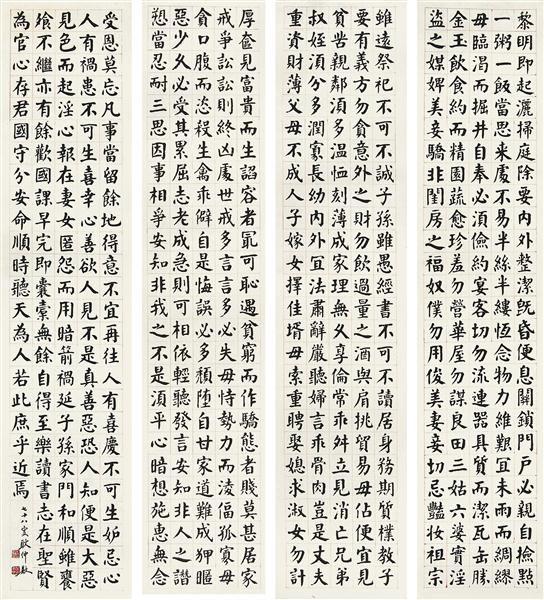 黎明即起灑掃庭除要內外整潔既昏便息關鎖門戶必親自檢點
一粥一飯當思來處不易半絲半縷恆念物力維艱宜未雨而綢繆
毋臨渴而掘井自奉必須儉約宴客切勿流連器具質而潔瓦缶勝
金玉飲食約而精園蔬愈珍羞勿營華屋勿謀良田三姑六婆實淫
盜之媒婢美妾驕非閨房之福奴僕勿用俊美妻妾切忌豔妝祖宗
雖遠祭祀不可不誠子孫雖愚經書不可不讀居身務期質樸教子
要有義方勿貪意外之財勿飲過量之酒與肩挑貿易毋佔便宜見
貧苦親鄰須多溫恤刻薄成家理無久享倫常乖舛立見消亡兄弟
叔姪須分多潤寡長幼內外宜法肅辭嚴聽婦言乖骨肉豈是丈夫
重資財薄父母不成人子嫁女擇佳壻毋索重聘娶媳求淑女勿計
厚奩見富貴而生諂容者冣可恥遇貧窮而作驕態者賤莫甚居家
戒爭訟訟則終凶處世戒多言言多必失毋恃勢力而凌偪孤寡毋
貪口腹而恣殺生禽乖僻自是悔誤必多頹隳自甘家道難成狎暱
惡少久必受其累屈志老成急則可相依輕聽發言安知非人之譖
愬當忍耐三思因事相爭安知非我之不是須平心暗想施惠無念
受恩莫忘凡事當留餘地得意不宜再往人有喜慶不可生妒忌心
人有禍患不可生喜幸心善欲人見不是真善惡恐人知便是大惡
見色而起淫心報在妻女匿怨而用暗箭禍延子孫家門和順雖饔
飧不繼亦有餘歡國課早完即囊橐無餘自得至樂讀書志在聖賢
為官心存君國守分安命順時聽天為人若此庶乎近焉